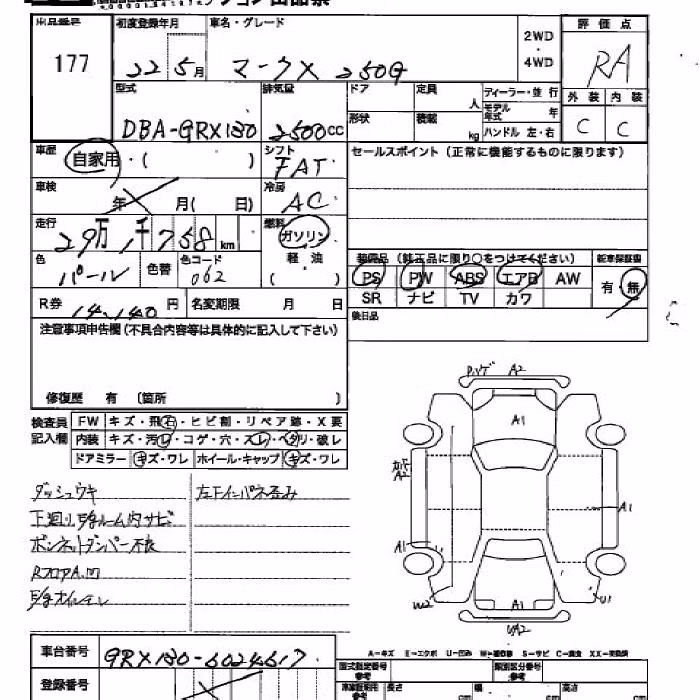 出品番号 初度登録年月 車名・グレード 評価点
177 22 5月 マークX 250G 2WD・4WD RA
型式 排気量 ドア 定員 人 ディーラー・並行 外装 内装
DBA-GRX130 2500cc 形状 積載 kg モデル年式 年 ハンドル 左・右 C C
車歴 自家用・( ) シフト FAT セールスポイント(正常に機能するものに限ります)
車検 年 月( 日) 冷房 AC
走行 29万 1千758km 燃料 ガソリン
軽油
( )
色 パール 色替 色コード 062
装備品 (純正品に限り○をつけてください) 新車保証書
PS PW ABS エアB AW 有・無
SR ナビ TV カワ
R券 14,140円 名変期限 月 日 後日品
注意事項申告欄(不具合内容等は具体的に記入して下さい)
修復歴 有 〔箇所 〕
検査員記入欄 FW キズ・飛石・ヒビ割・リペア跡・X要
内装 キズ・汚レ・コゲ・穴・スレ・ヘタリ・破レ
ドアミラー キズ・ワレ ホイール・キャップ キズ・ワレ
ダッシュウキ 左下インパネ歪み
下廻り
ボンネットダンパー不良
RフロアA.凹
A2
A1
A2
A1
A1
W2 A1 U1
UA2
A-キズ E-エクボ U-凹み S-サビ C-腐食 XX-交換済
車台番号 GRX130-6024617
登録番号
型式指定番号 参考 類別区分番号 参考
長さ cm 幅 cm 高さ cm